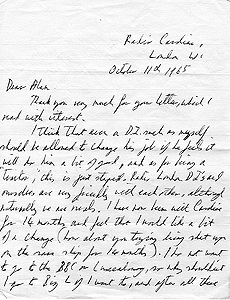 Radio Caroline,
London W1
October 11th 1965
Dear Alan
Thank you very much for your letter, which I
read with interest.
I think that even a D.J. such as myself
should be allowed to change his job if he feels it
will do him a bit of good, and as for being a
traitor, this is just stupid. Radio London DJs and
ourselves are very friendly with each other, although
naturally we are rivals. I have now been with Caroline
for 14 months and feel that I would like a bit
of a change (how about you trying being shut up
on the same ship for 14 months). I do not want
to go to the BBC or Luxembourg, so why shouldn't
I go to Big L if I want to, and after all there